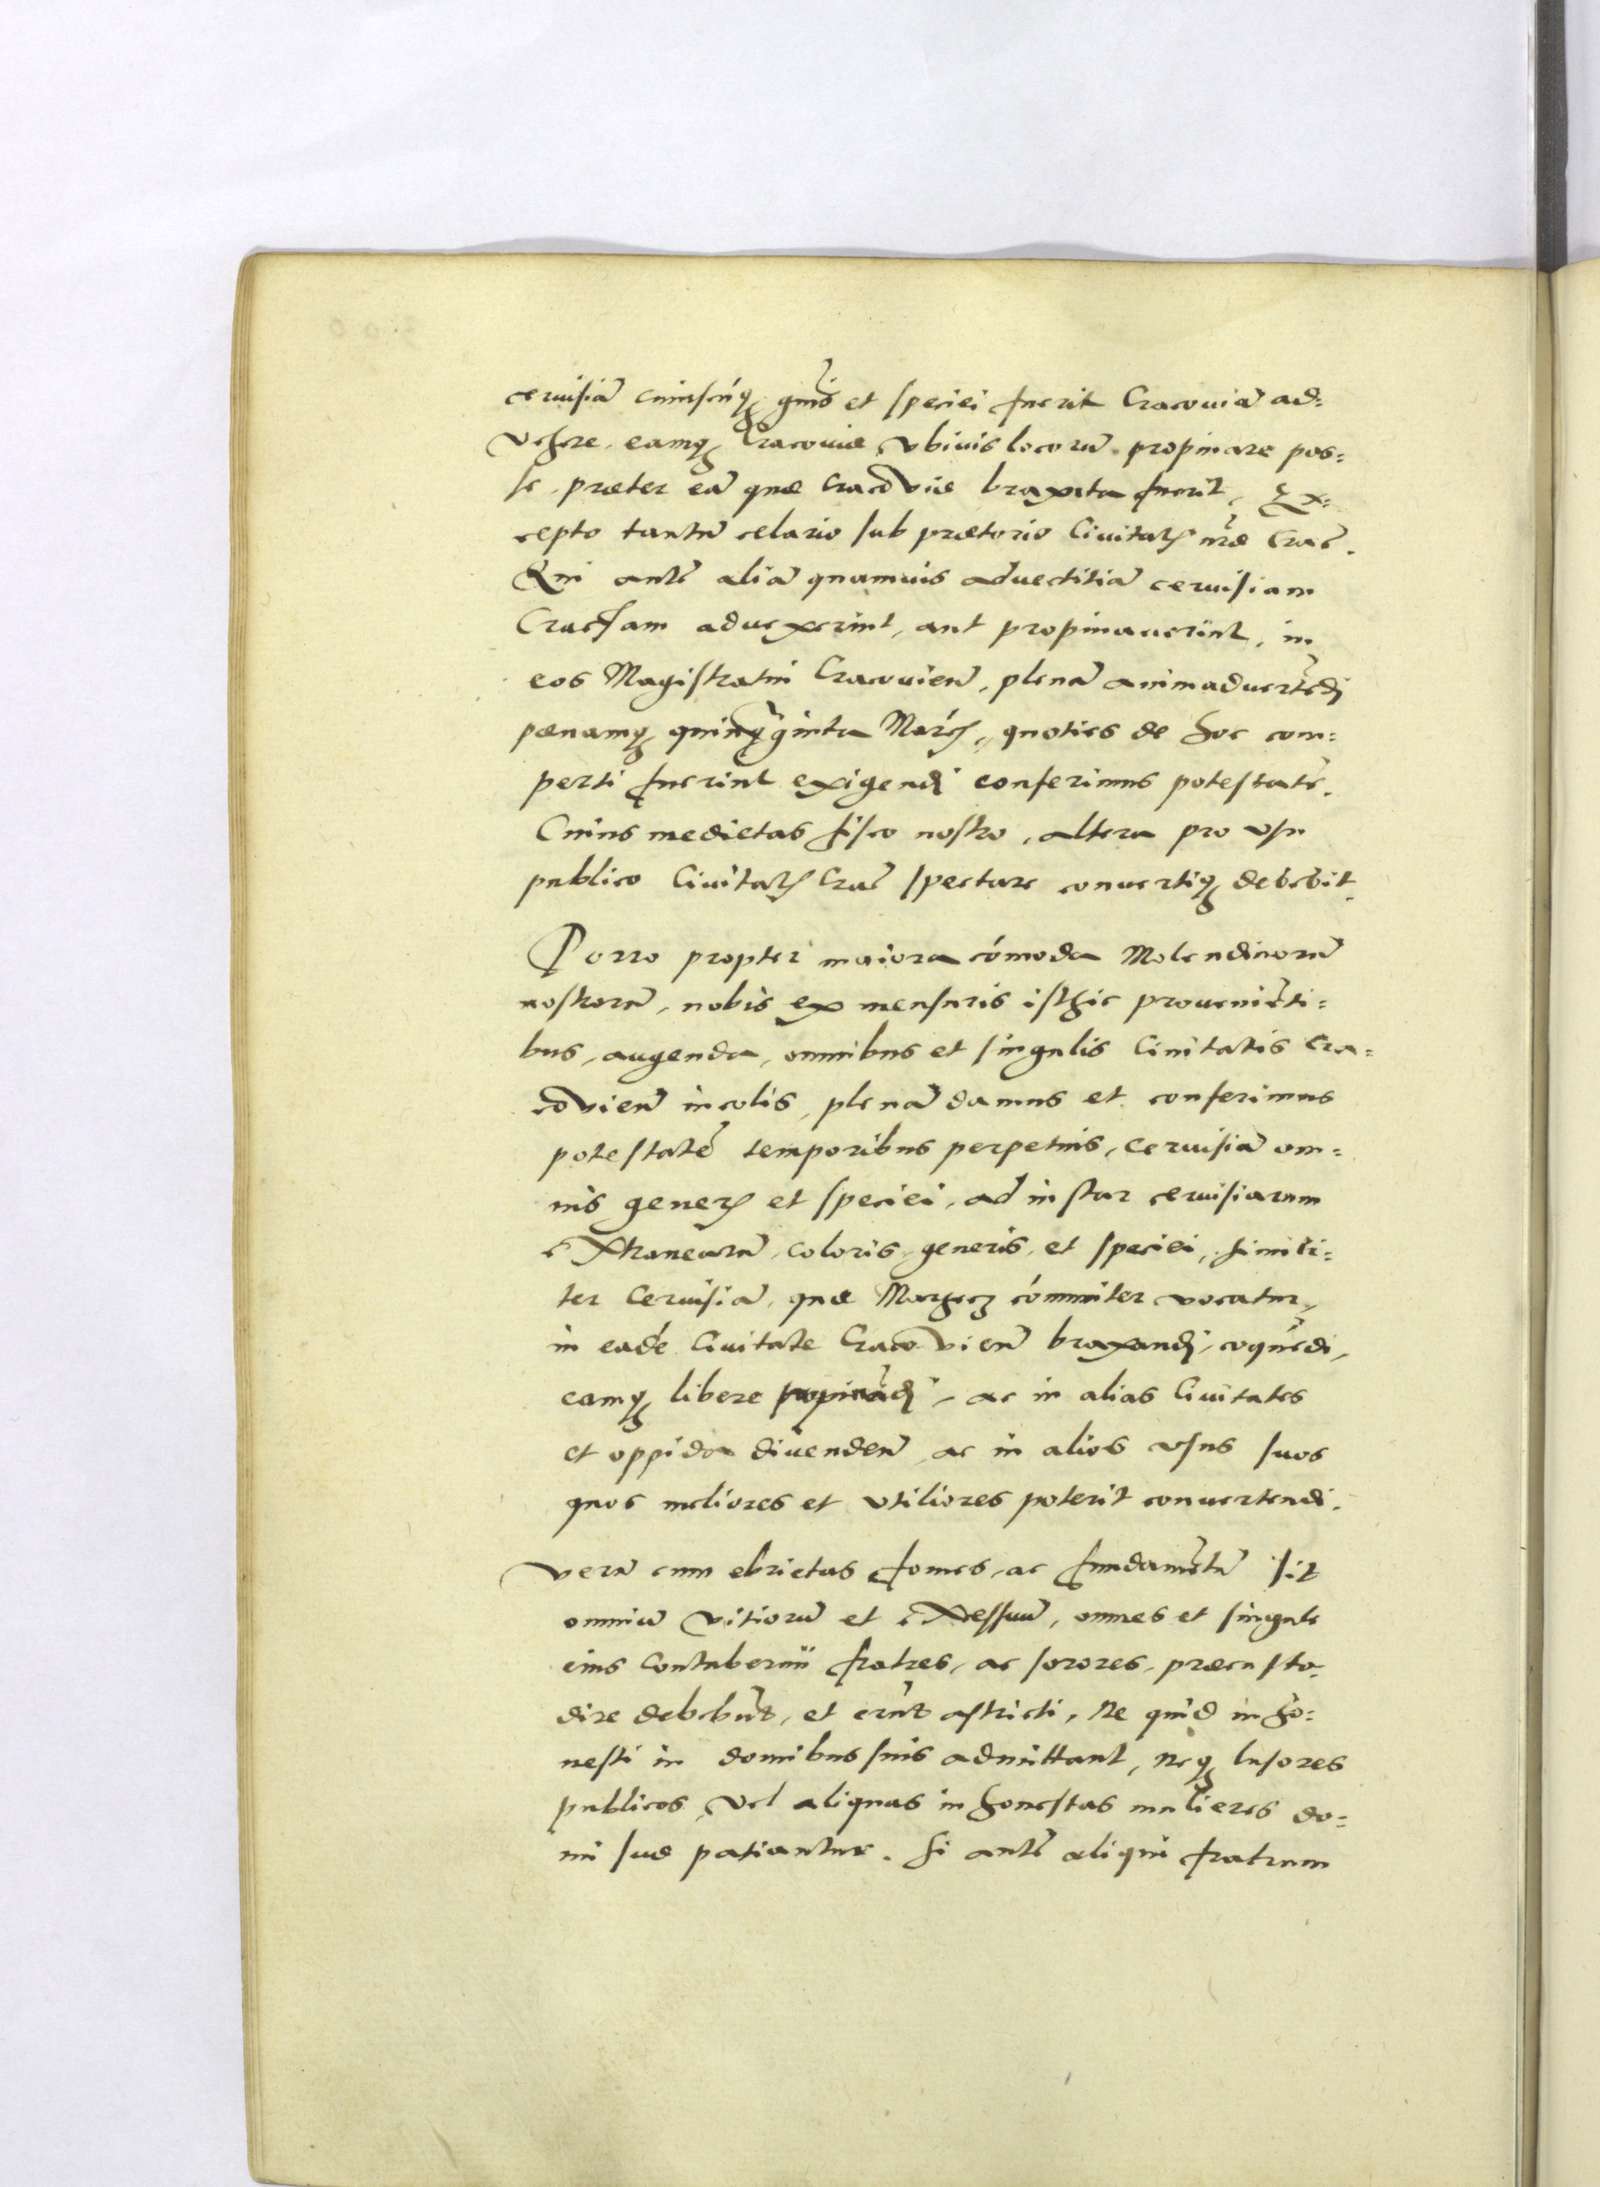 ceruisiā cuiuscūq₃ gn̄is et speciei fuerit Cracouiā ad:
vehere, eamq₃ Cracouiæ vbiuis locorū propinare pos:
se, præter eā quæ Cracoviæ braxata fuerit, Ex:
cepto tantū celario sub prætorio Ciuitatꝭ nr̄æ Crac̄.
Qui autē aliā quamuis aduectitiā ceruisiam
Crac̄iam aduexerint, aut propinauerint, in
eos Magistratui Cracouien̄, plenā animaduertēdi
pænamq₃ quinquaginta Marcꝭ, quoties de hoc com:
perti fuerint exigendi conferimus potestatē.
Cuius medietas fisco nostro, altera pro vsu
publico Ciuitatꝭ Crac̄ spectare conuertiq₃ debebit.
Porro propter maiora cōmoda Molendinorū
nostrorū, nobis ex mensuris isthic proueniēti:
bus, augenda, omnibus et singulis Ciuitatis Cra:
covien̄ incolis, plenā damus et conferimus
potestatē temporibus perpetuis, ceruisiā om:
nis generꝭ et speciei, ad instar ceruisiarum
extranearū, coloris, generis, et speciei, simili:
ter Ceruisiā, quæ Marzecz cōmuniter vocatur,
in eadē Ciuitate Cracovien̄ braxandi, coquēdi,
eamq₃ libere propinādi, ac in alias Ciuitates
et oppida diuenden̄, ac in alios vsus suos
quos meliores et vtiliores poterit conuertendi.
Verū cum ebrietas fomes, ac fundamētū sit
omniū vitiorū et excessuū, omnes et singule
eius Contubernii fratres, ac sorores, præcusto:
dire debebūt, et erūt astricti, Ne quid inho:
nesti in domibus suis admittant, neq₃ lusores
publicos, vel aliquas inhonestas mulieres do:
mi suæ patiantur. Si autē aliqui fratrum